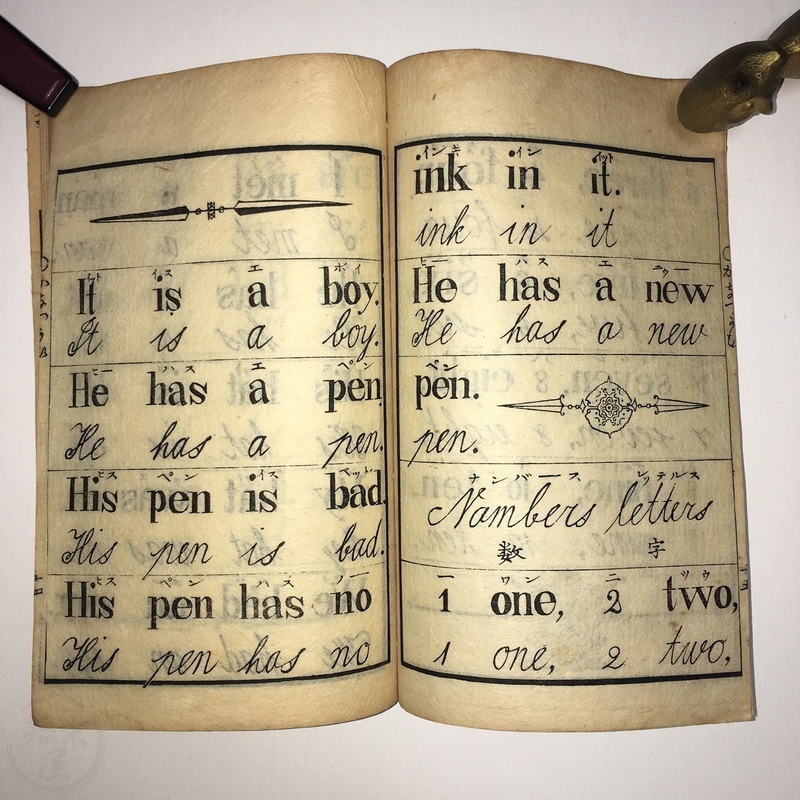 イト イス エ ボイ
It is a boy.
It is a boy.
ヒー ハス エ ペン
He has a pen
He has a pen.
ヒス ペン イス ベット
His pen is bad.
His pen is bad.
ヒス ペン ハス ノー
His pen has no
His pen has no
インキ イン イット
ink in it.
ink in it
ヒー ハス エ ニウー
He has a new
He has a new
ペン
pen.
pen.
ナンバース レッテルス
Nambers letters
数 字
一 ワン 二 ツウ
1 one, 2 two,
1 one, 2 two,